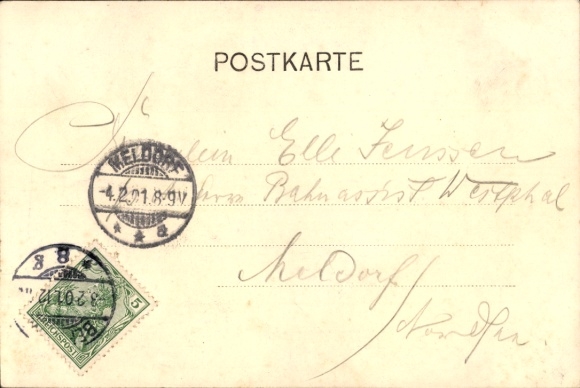 POSTKARTE
Fräulein Elle Jenssen
MELDORF
-4.2.01.8-9V
* * a
Herrn Bahnassist Westphal
Meldorf
8 g *
3.2.01.12
5
REICHSPOST